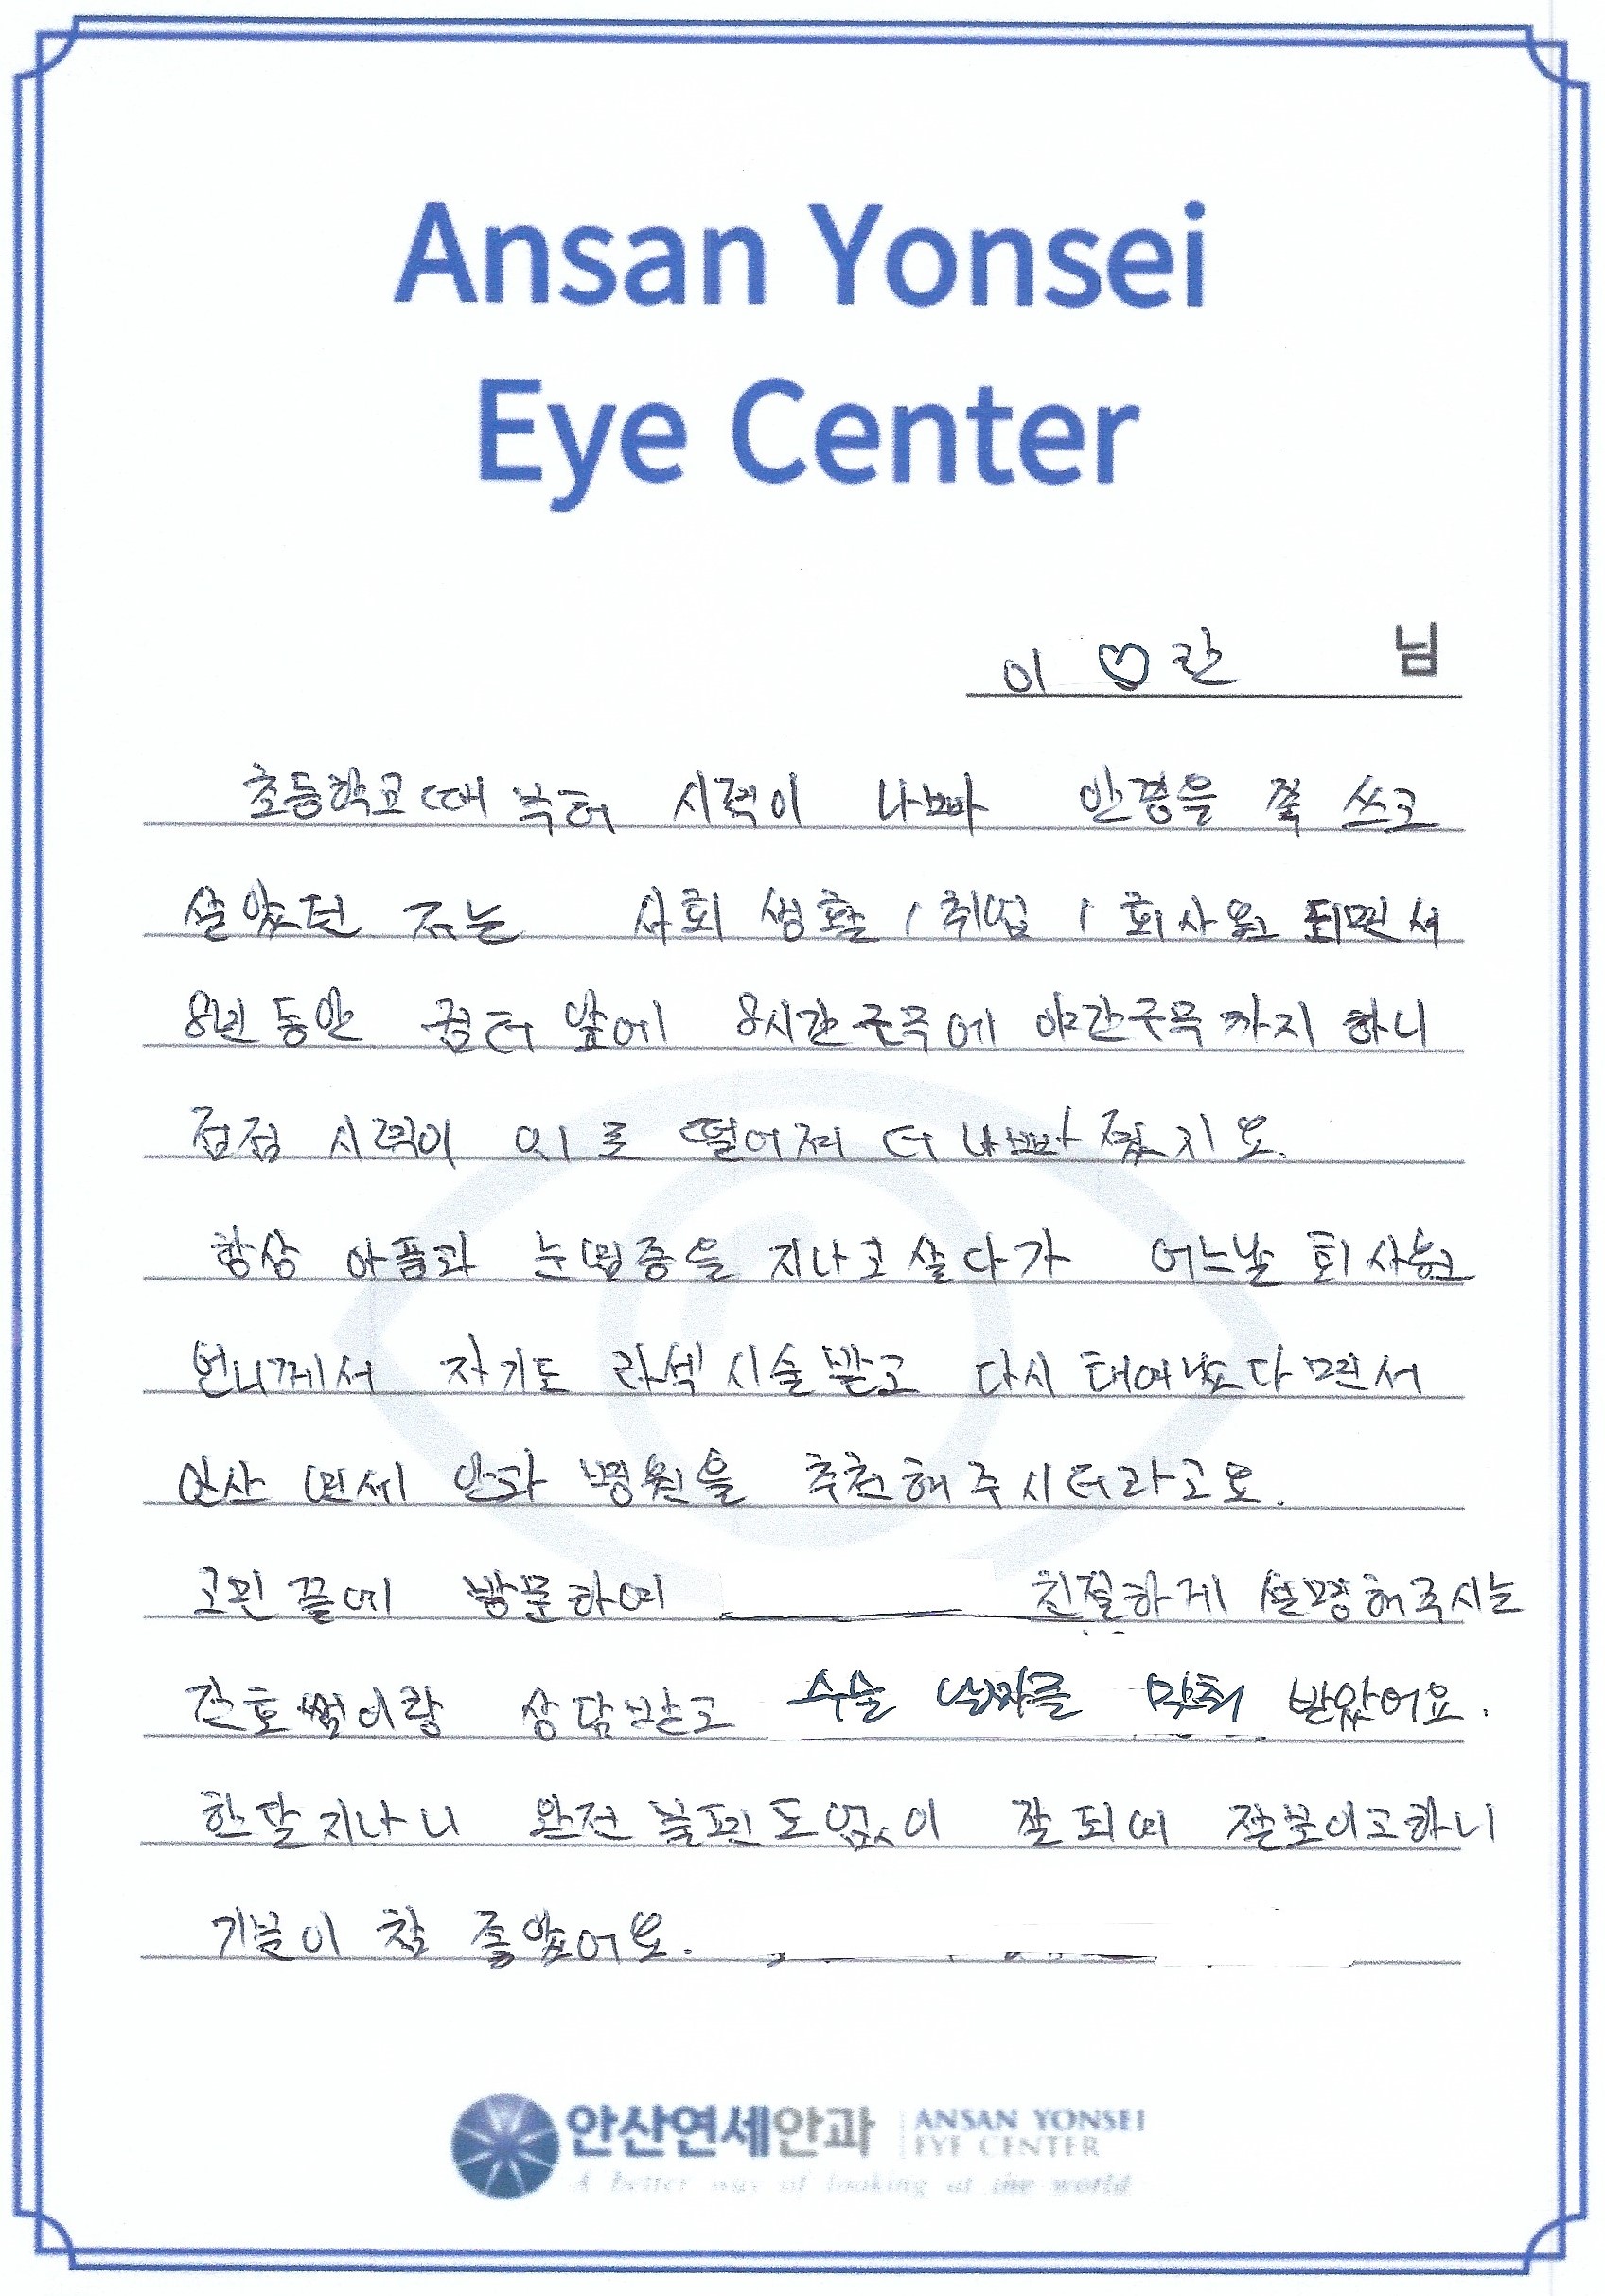 Ansan Yonsei
Eye Center
이 ♡란 님
초등학교때 부터 시력이 나빠 안경을 쭉 쓰고
살았던 저는 사회 생활 / 취업 / 회사원 되면서
8년동안 컴터 앞에 8시간근무에 야간근무까지 하니
점점 시력이 0.1로 떨어져 더 나빠졌지요.
항상 아픔과 눈병증을 지나고 살다가 어느날 회사
언니께서 자기도 라섹 시술받고 다시 태여났다면서
안산 연세 안과 병원을 추천해주시더라고요.
고민끝에 방문하여 친절하게 설명해주시는
간호쌤이랑 상담받고 수술 날짜를 맞춰 받았어요.
한달지나니 완전 불편도없이 잘되여 잘보이고하니
기분이 참 좋았어요.
안산연세안과 ANSAN YONSEI
EYE CENTER
A better way of looking at the world